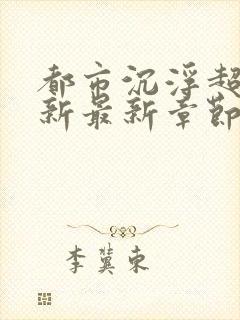 都市沉浮超
新最新章节
李冀东